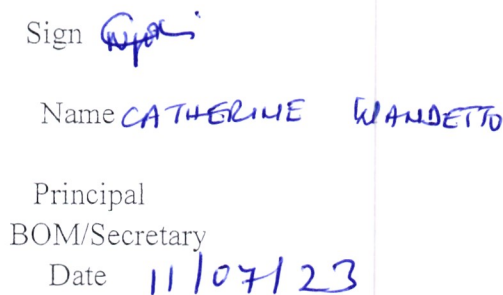 Sign
Name CATHERINE WANDETTO
Principal
BOM/Secretary
Date 11/07/23